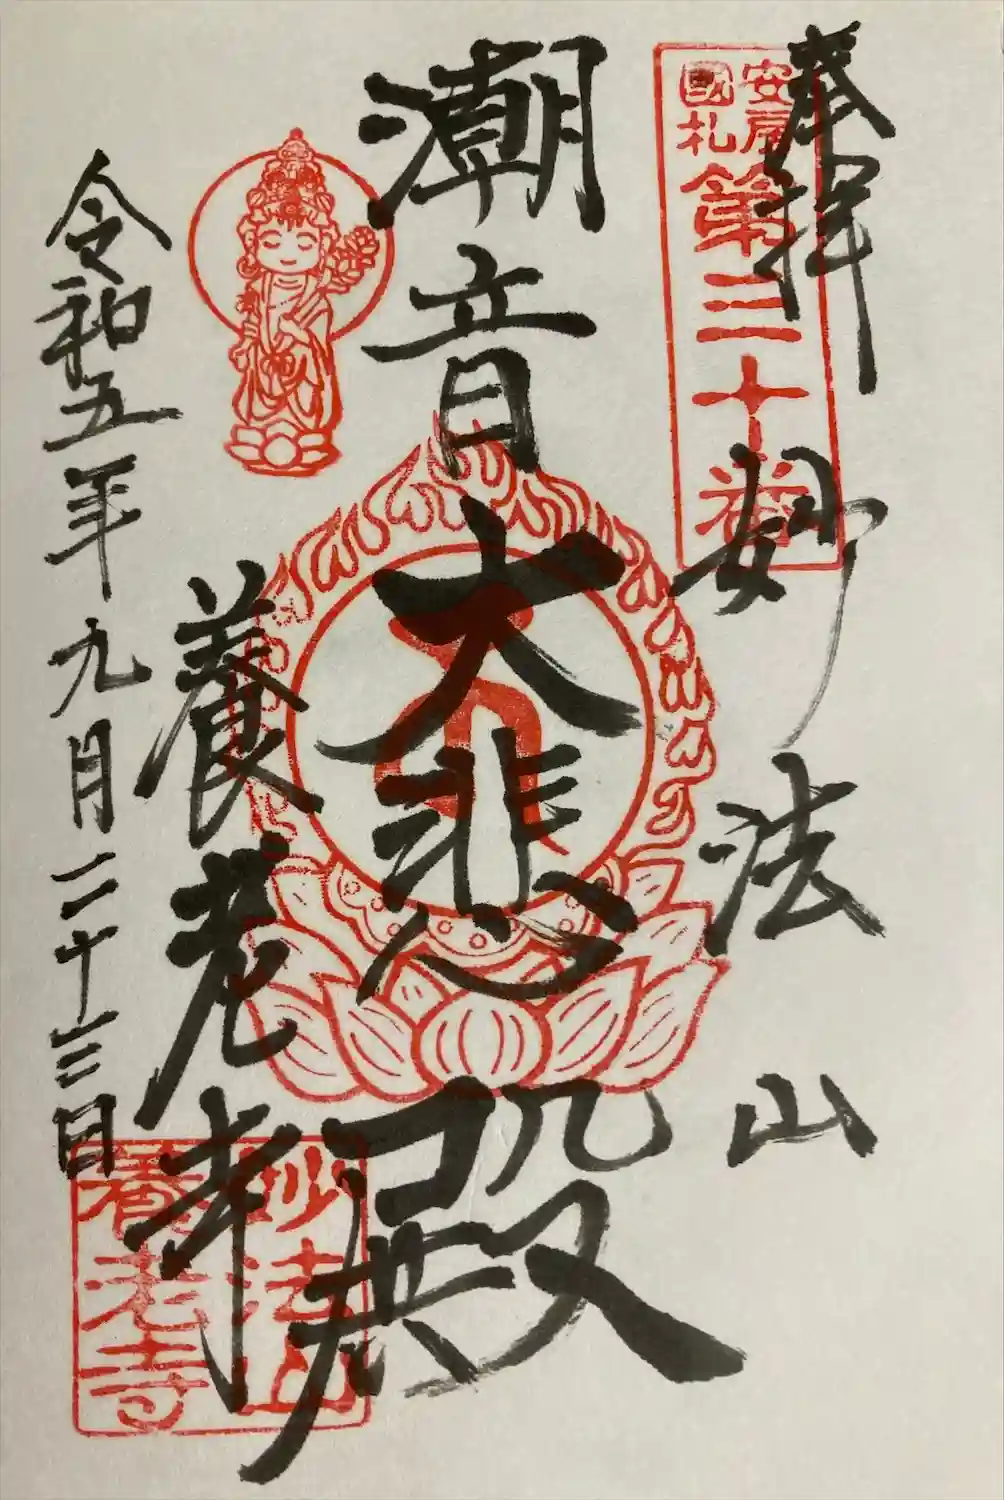 奉拝
安房
國札
第三十番
妙法山
潮音
大悲殿
養老寺
令和五年九月二十三日
妙法山
養老寺